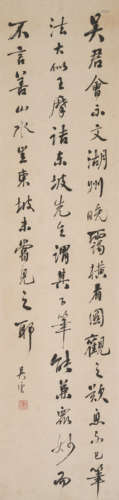 吴君會示文湖州晚靄橫看圖觀之歎息不已筆
法大似王摩詰東坡先生謂其下筆能兼眾妙而
不言善山水豈東坡未嘗見之耶 吳雲